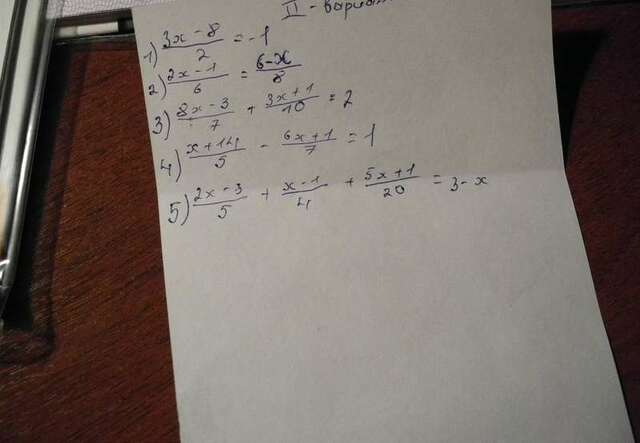 II - вариант
1) (3x - 8)/2 = -1
2) (2x - 1)/6 = (6 - x)/8
3) (8x - 3)/7 + (3x + 1)/10 = 2
4) (x + 14)/5 - (6x + 1)/7 = 1
5) (2x - 3)/5 + (x - 1)/4 + (5x + 1)/20 = 3 - x